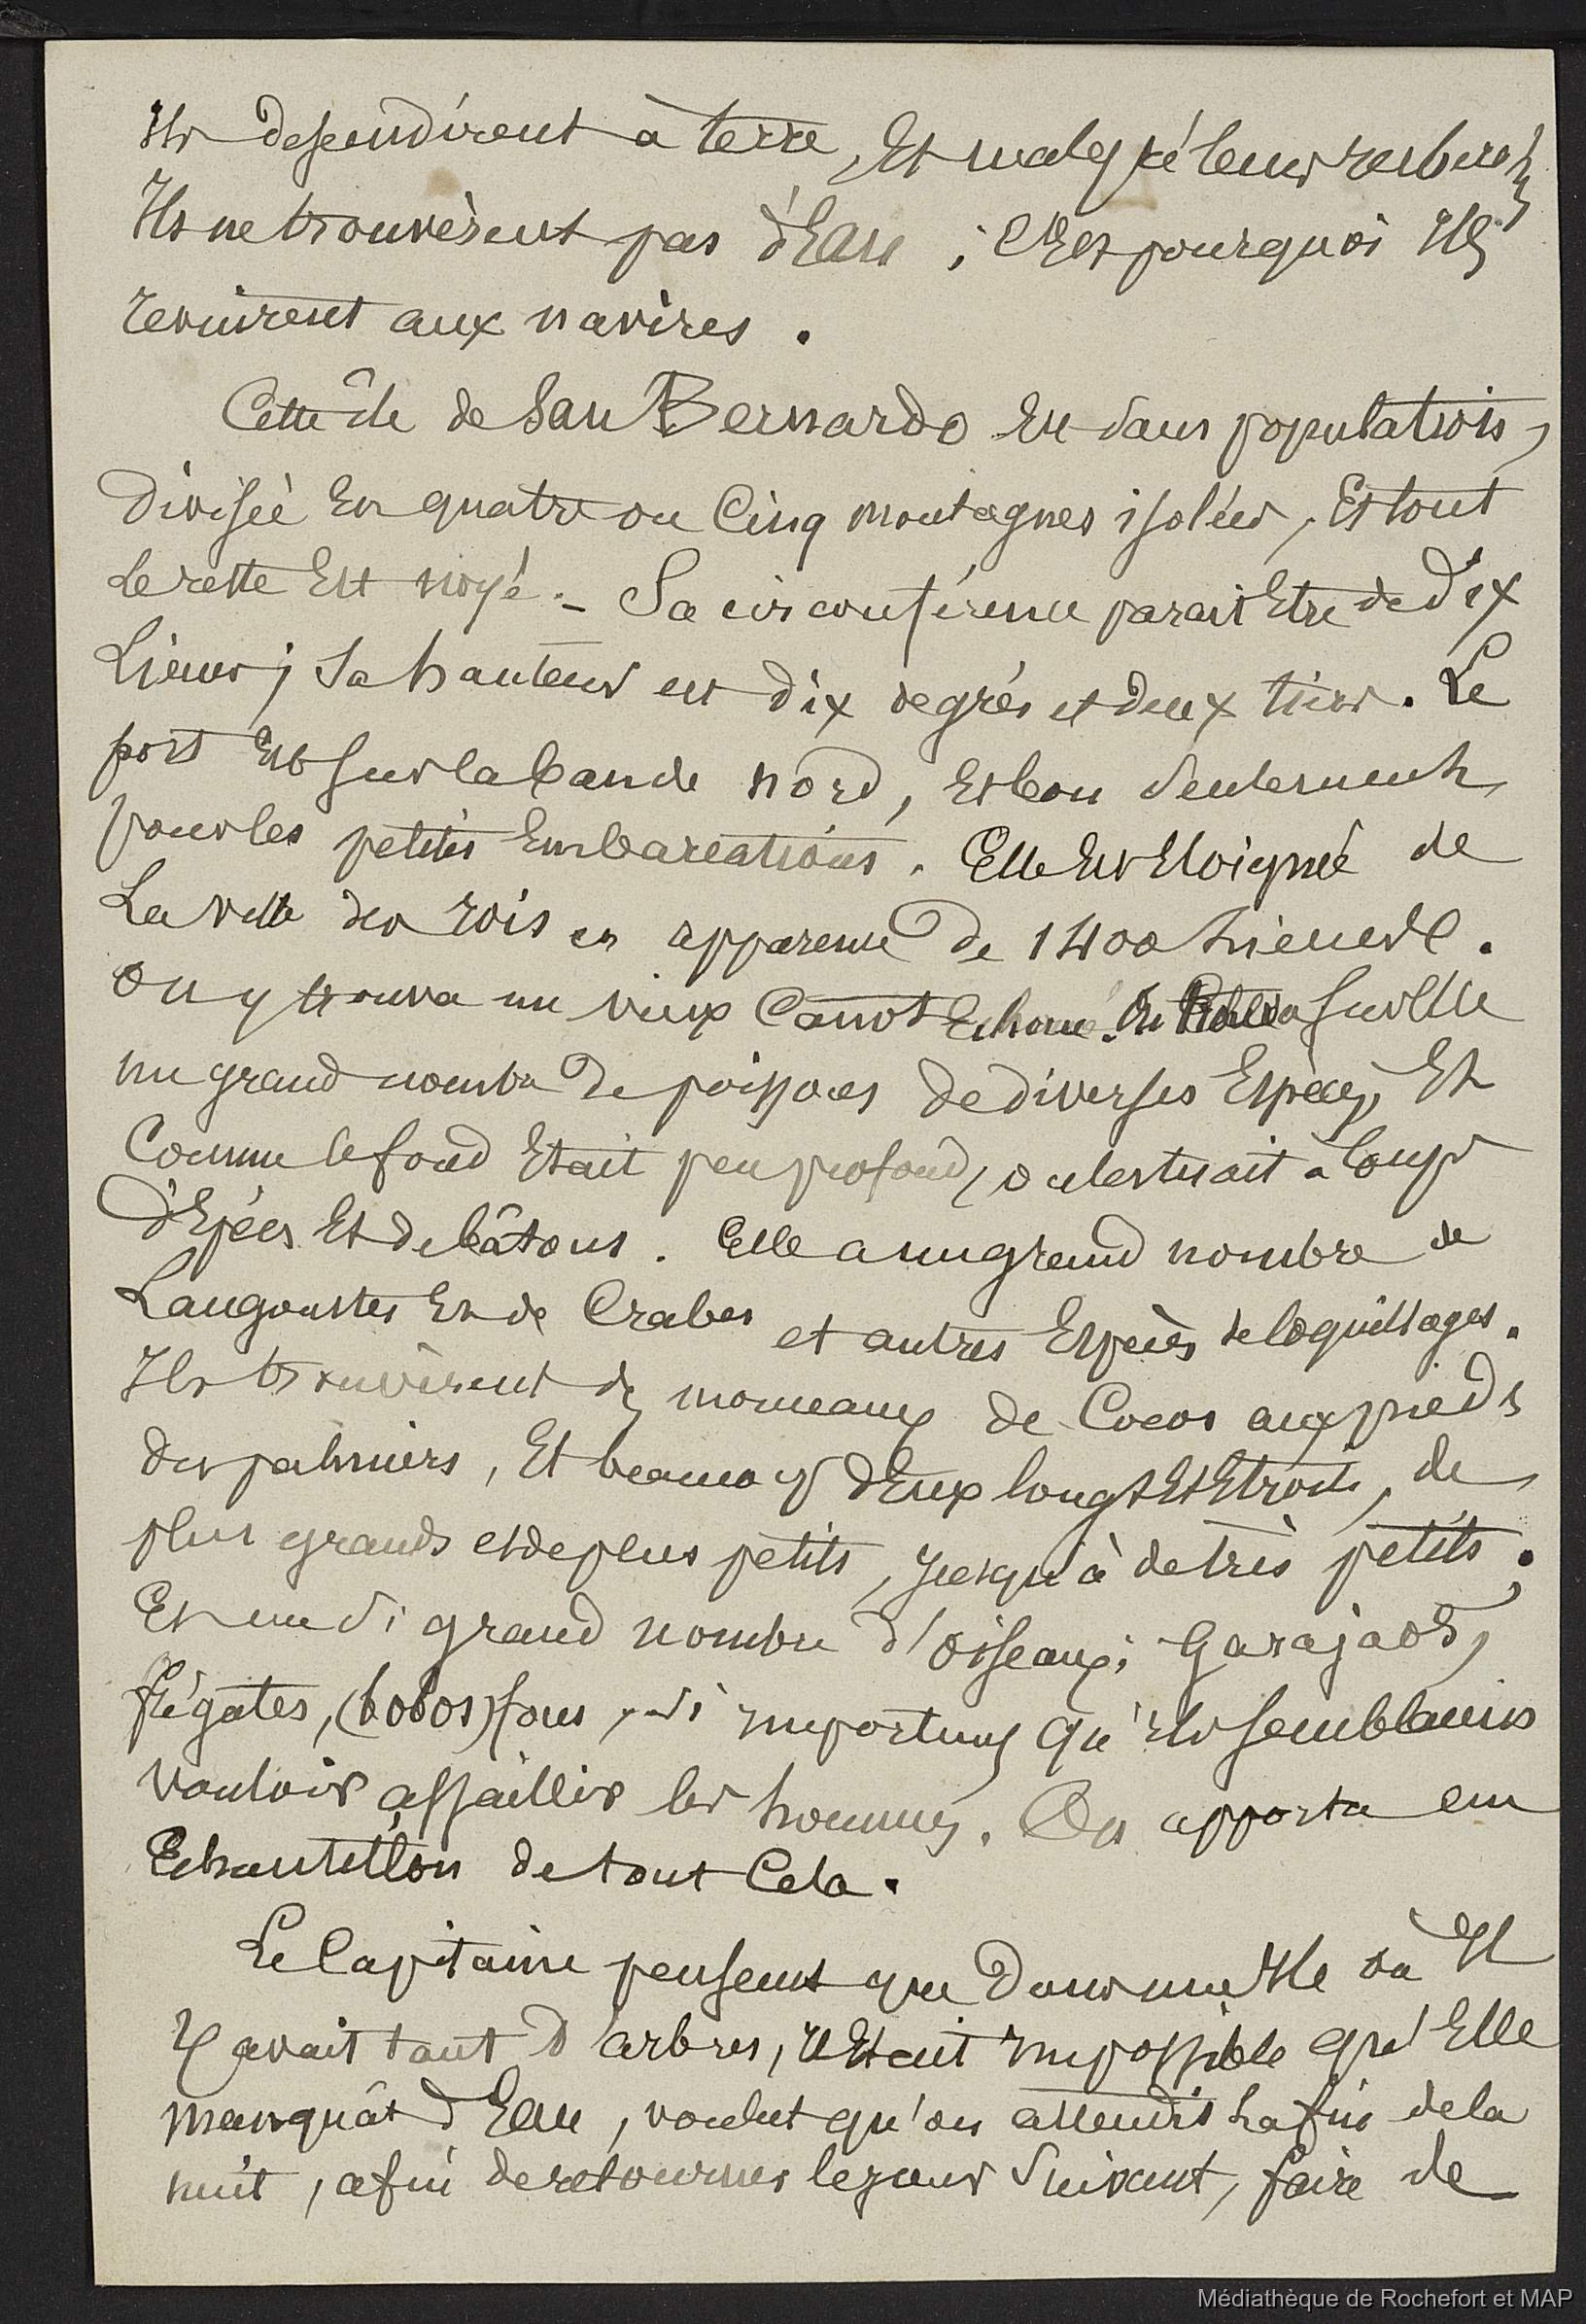 Ils descendirent à terre, Et malgré leurs recherches
Ils ne trouvèrent pas d'Eau ; C'Est pourquoi Ils
revinrent aux navires.
Cette île de San Bernardo Est sans population,
divisée En quatre ou Cinq montagnes isolées, Et tout
Le reste Est noyé. - Sa circonférence parait Etre de dix
Lieues ; sa hauteur est dix degrés et deux tiers. Le
port Est sur la bande nord, Et bon seulement
pour les petites Embarcations. Elle Est Eloignée de
La ville des rois en apparence de 1400 Lieues.
On y trouva un vieux Canot Echoué. On sur Elle
un grand nombre de poissons de diverses Espèces, Et
Comme le fond Etait peu profond, on les tuait à Coups
d'Epées Et de bâtons. Elle a un grand nombre de
Langoustes Et de Crabes et autres Espèces de Coquillages.
Ils trouvèrent des morceaux de Cocos aux pieds
des palmiers, Et beaucoup d'Eux longs Et Etroits, de
plus grands et de plus petits, jusqu'à de très petits ;
Et un si grand nombre d'oiseaux ; Garajaos,
frégates, (bobos) fous, si importuns qu'ils semblaient
vouloir assaillir les hommes. On apporta un
Echantillon de tout Cela.
Le Capitaine pensant que dans une Ile où Il
Y avait tant d'arbres, Il Etait Impossible qu'Elle
manquât d'Eau, voulut qu'on attendit La fin de la
nuit, afin de retourner le jour Suivant, faire de
Médiathèque de Rochefort et MAP